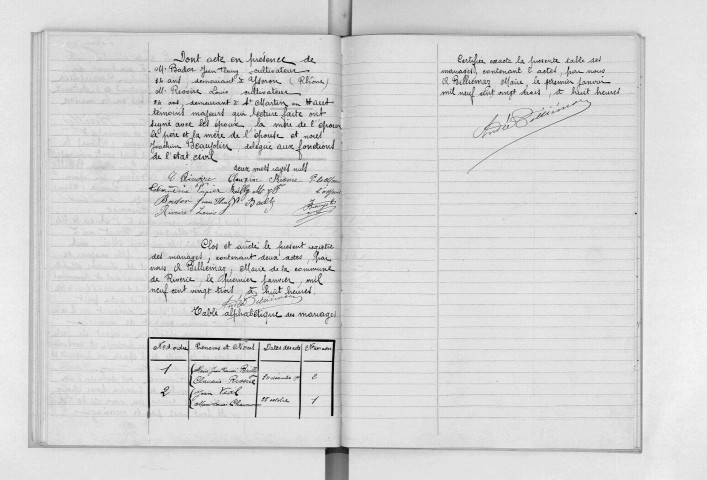 Dont acte en présence de
Mr Bador Jean Claude cultivateur
ans, demeurant à (Rhône)
Mr Rivoire Louis cultivateur
ans, demeurant à St Martin en Haut
témoins majeurs qui lecture faite ont
signé avec les époux, la mère de l'époux
le père et la mère de l'épouse et nous
Joachim Beaujolin, délégué aux fonctions
de l'état civil
deux mots rayés nuls
Rivoire Rivoire
Bador Bailly
Rivoire Louis
Clos et arrêté le présent registre
des mariages, contenant deux actes, par
nous A Billiémaz, Maire de la commune
de Riverie, le premier janvier, mil
neuf cent vingt trois, à huit heures.
Table alphabétique des mariages
Nos d'ordre Prénoms et Noms Dates des actes
1
Claudius Rivoire 2
2 Jean
octobre 1
Certifiée exacte la présente table des
mariages, contenant 2 actes, par nous
A Billiémaz Maire, le premier janvier
mil neuf cent vingt trois, à huit heures